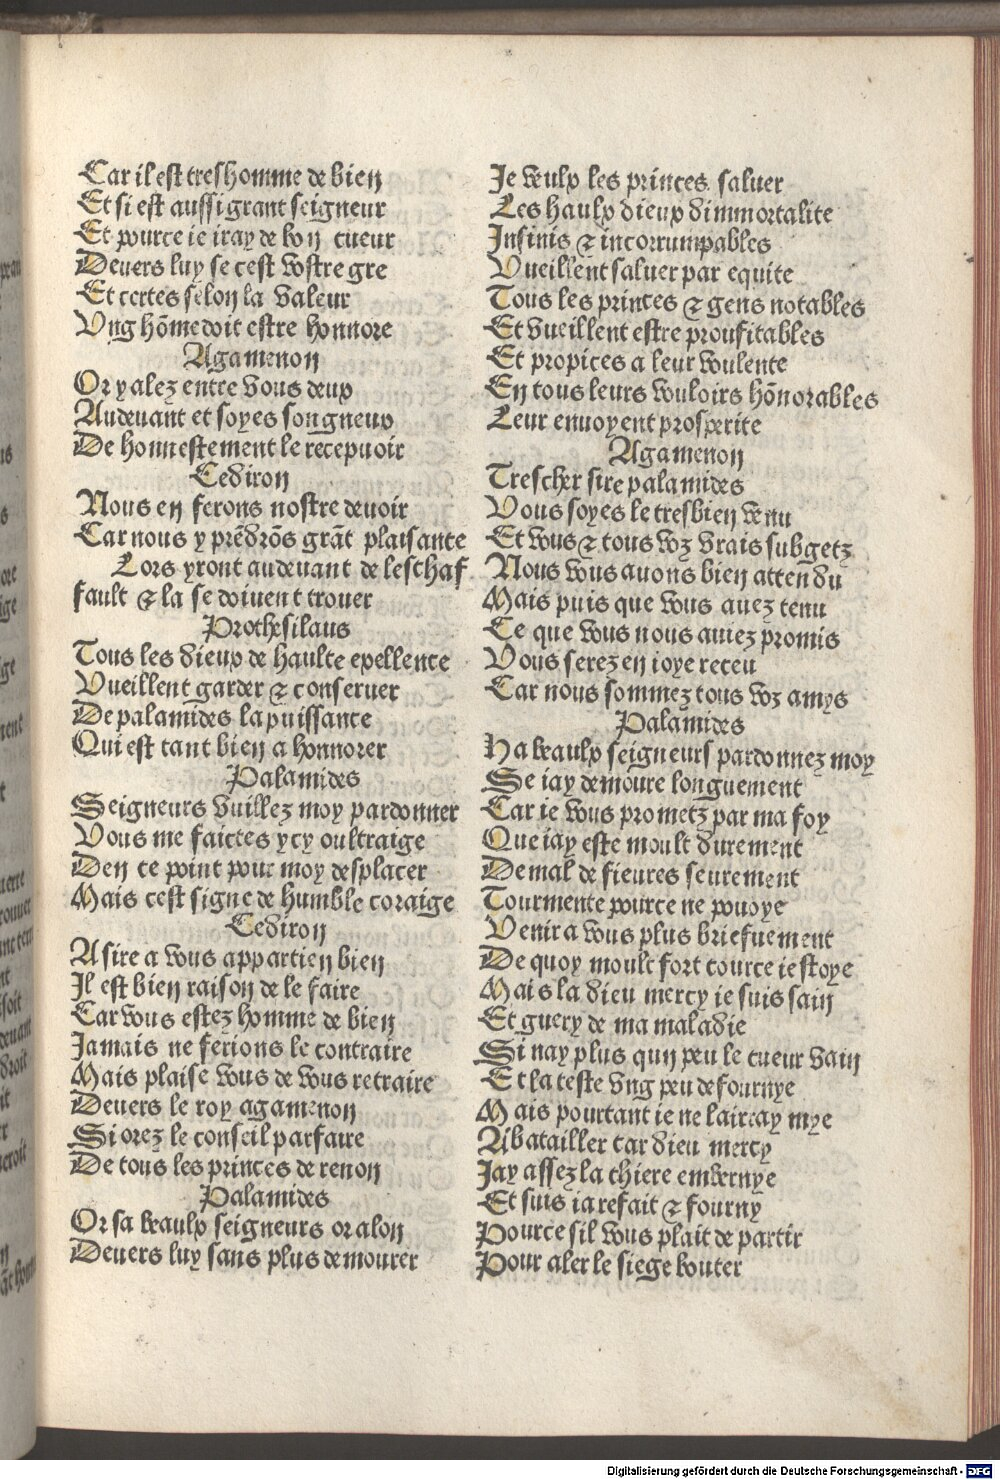 Car il est treshomme de bien
Et si est aussi grant seigneur
Et pource ie iray de bon cueur
Deuers luy se cest vostre gre
Et certes selon la valeur
Vng hõme doit estre honnore
Agamenon
Or y alez entre vous deux
Audeuant et soyes songneux
De honnestement le recepuoir
Cediron
Nous en ferons nostre deuoir
Car nous y prẽdrõs grãt plaisance
Lors yront audeuant de leschaf
fault & la se doiuent trouer
Prothesilaus
Tous les dieux de haulte excellence
Vueillent garder & conseruer
De palamides la puissance
Qui est tant bien a honnorer
Palamides
Seigneurs vuillez moy pardonner
Vous me faictes ycy oultraige
Den ce point pour moy desplacer
Mais cest signe de humble coraige
Cediron
A sire a vous appartien bien
Il est bien raison de le faire
Car vous estez homme de bien
Jamais ne ferions le contraire
Mais plaise vous de vous retraire
Deuers le roy agamenon
Si orez le conseil parfaire
De tous les princes de renon
Palamides
Or sa beaulx seigneurs or alon
Deuers luy sans plus demourer
Je veulx les princes saluer
Les haulx dieux dimmortalite
Infinis & incorrumpables
Vueillent saluer par equite
Tous les princes & gens notables
Et vueillent estre proufitables
Et propices a leur voulente
En tous leurs vouloirs hõnorables
Leur enuoyent prosperite
Agamenon
Trescher sire palamides
Vous soyes le tresbien venu
Et vous & tous voz vrais subgetz
Nous vous auons bien attendu
Mais puis que vous auez tenu
Ce que vous nous auiez promis
Vous serez en ioye receu
Car nous sommez tous voz amys
Palamides
Ha beaulx seigneurs pardonnez moy
Se iay demoure longuement
Car ie vous prometz par ma foy
Que iay este moult durement
De mal de fieures seurement
Tourmente pource ne pouoye
Venir a vous plus briefuement
De quoy moult fort cource iestoye
Mais la dieu mercy ie suis sain
Et guery de ma maladie
Si nay plus qun peu le cueur vain
Et la teste vng peu defournye
Mais pourtant ie ne lairray mye
A batailler car dieu mercy
Jay assez la chiere embernye
Et suis ia refait & fourny
Pource sil vous plait de partir
Pour aler le siege bouter
Digitalisierung gefördert durch die Deutsche Forschungsgemeinschaft - DFG